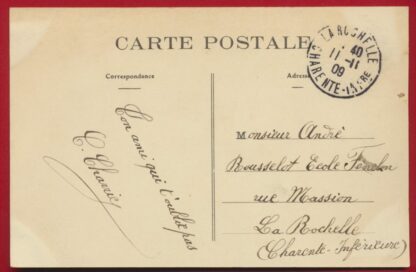 CARTE POSTALE
Correspondance
Adresse
LA ROCHELLE
40
11-11
09
CHARENTE-INFRE
Ton ami qui t'oublie pas
C. Charrier
Monsieur André
Rousselot Ecole Fénelon
rue Massion
La Rochelle
(Charente-Inférieure)